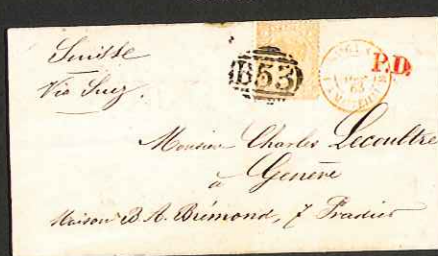 Suisse
Via Suez.
B53
P.D.
63
Monsieur Charles Lecoultre
à
Genève
Maison B. A. Brémond, 7 Pradier